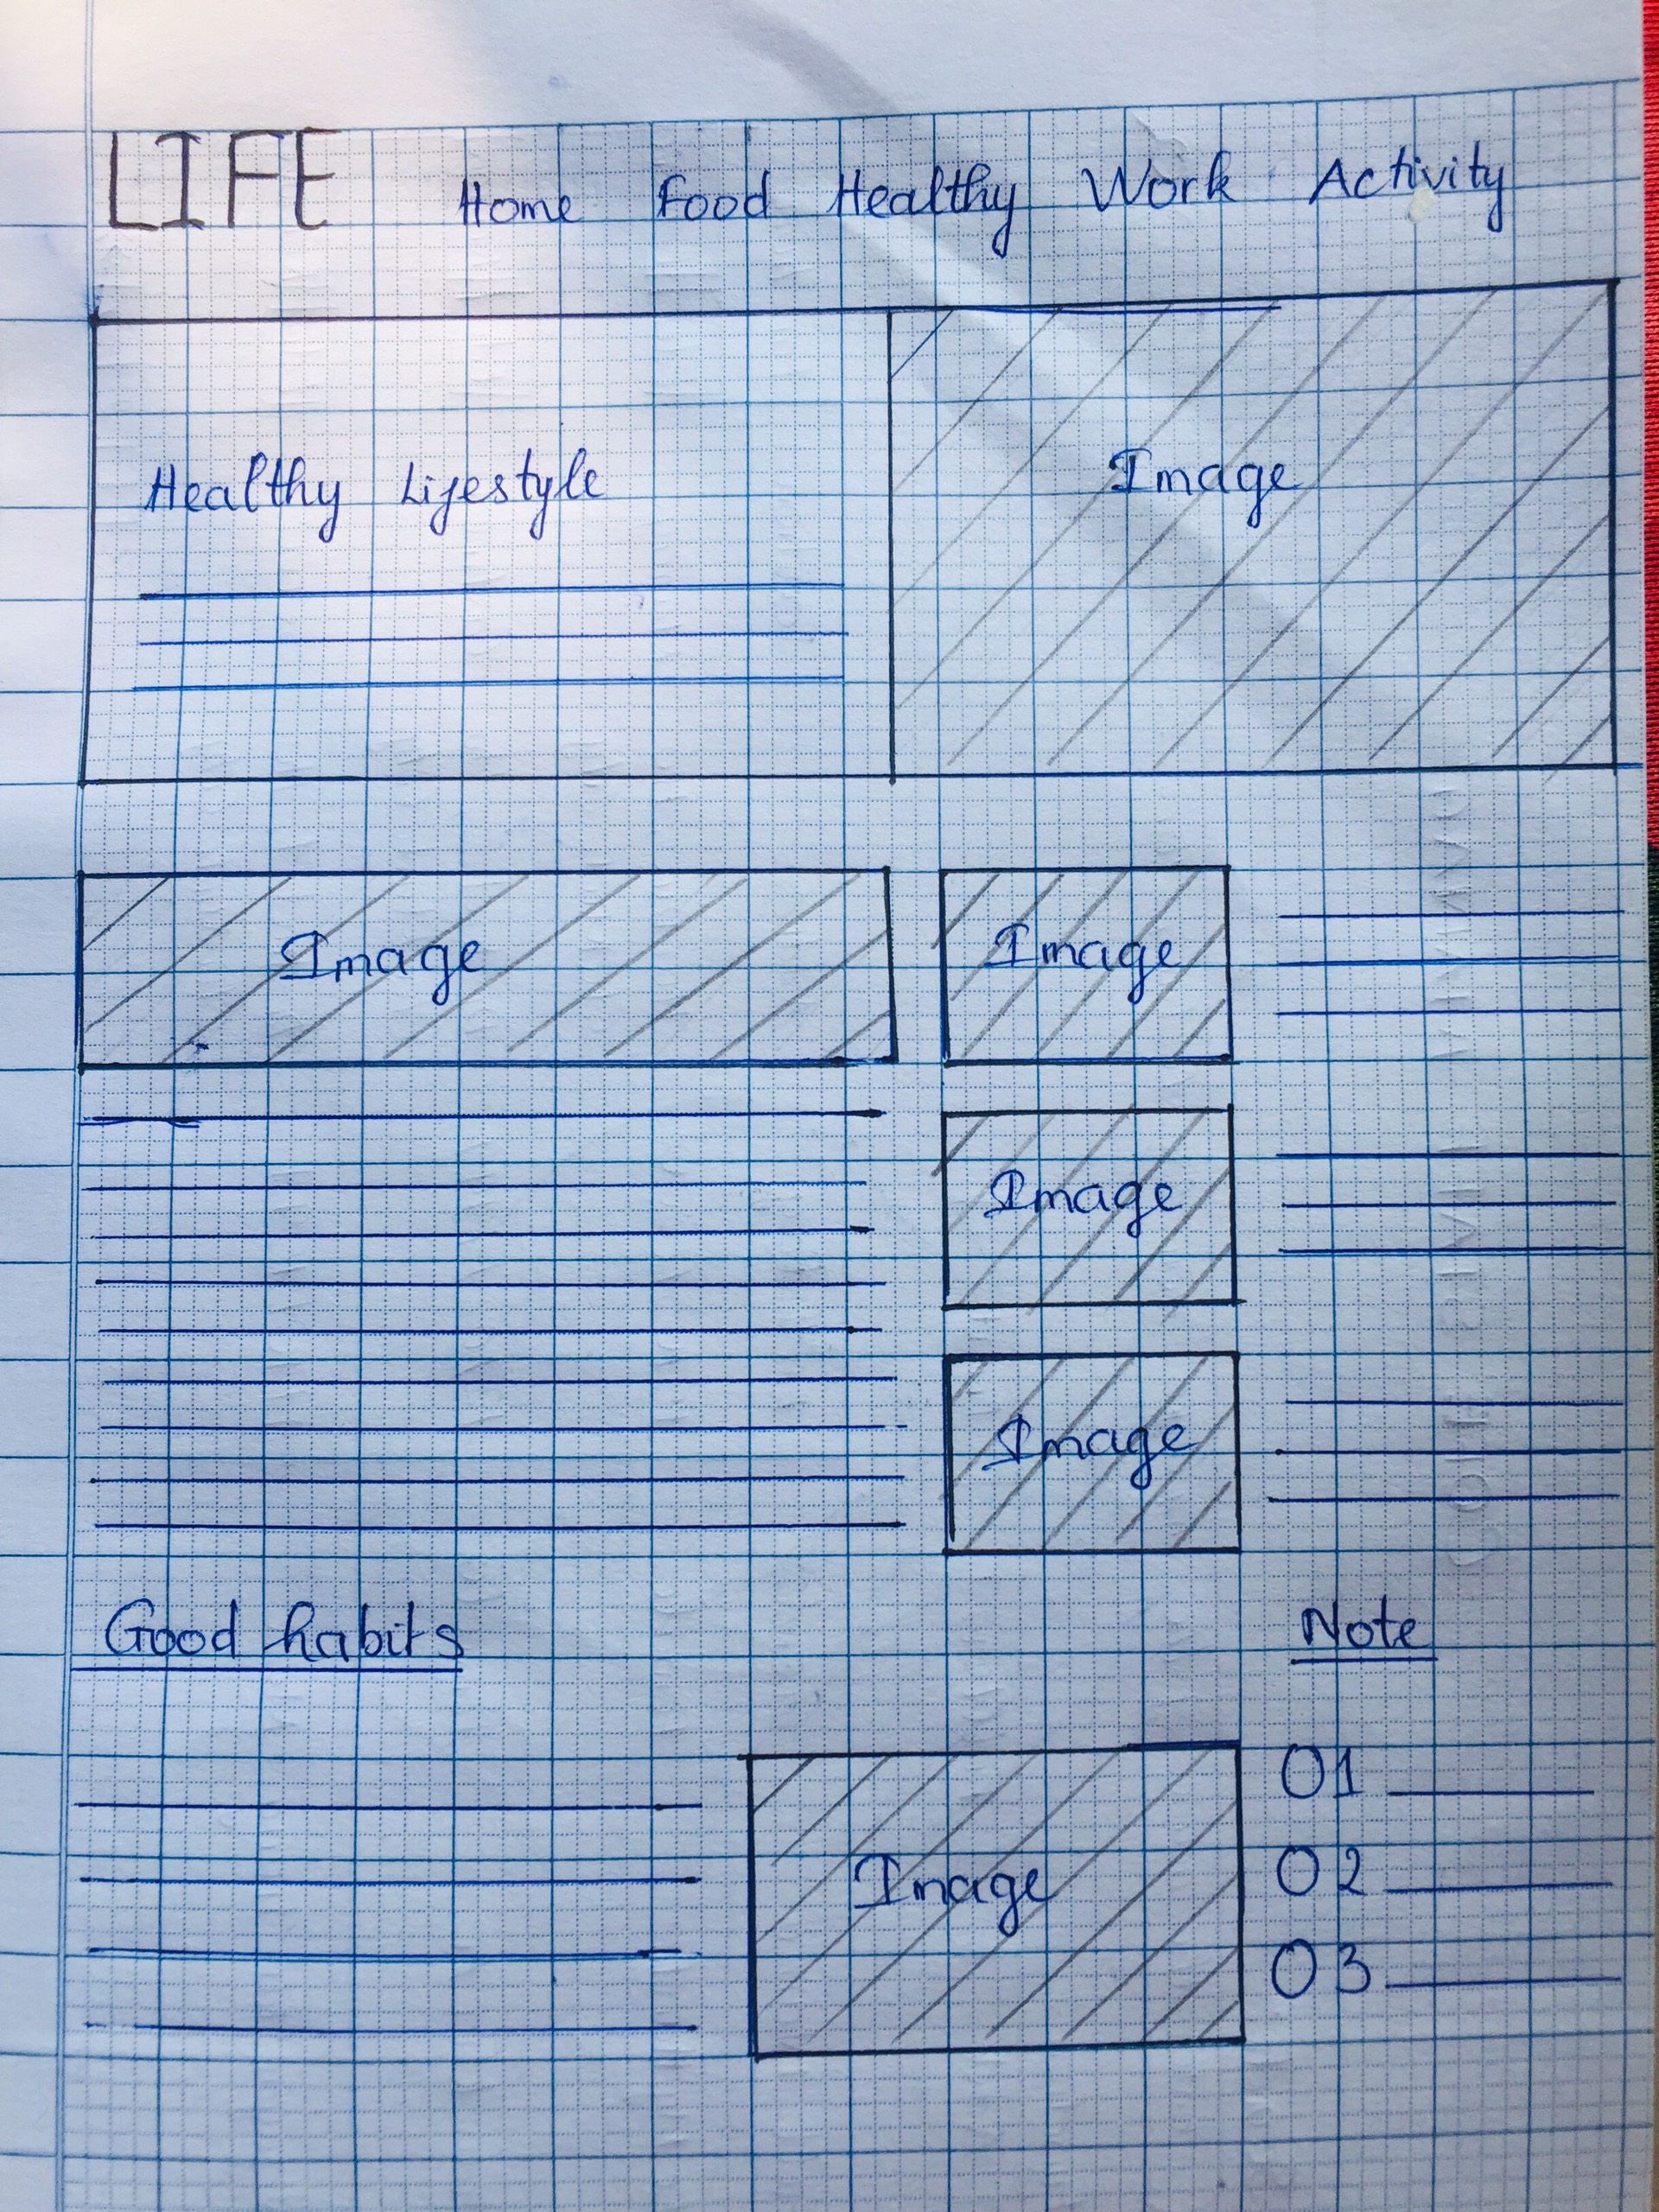 LIFE Home Food Healthy Work Activity
Healthy Lifestyle
Image
Image
Image
Image
Image
Good habits
Note
Image
01
02
03